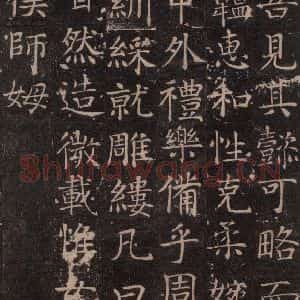 吾見其懿可略而
韞恵和性克柔嬪
中外禮樂備乎周
紃綵就雕縷凡曰
自然造微載惟女
俟師姆
Shufawang.CN